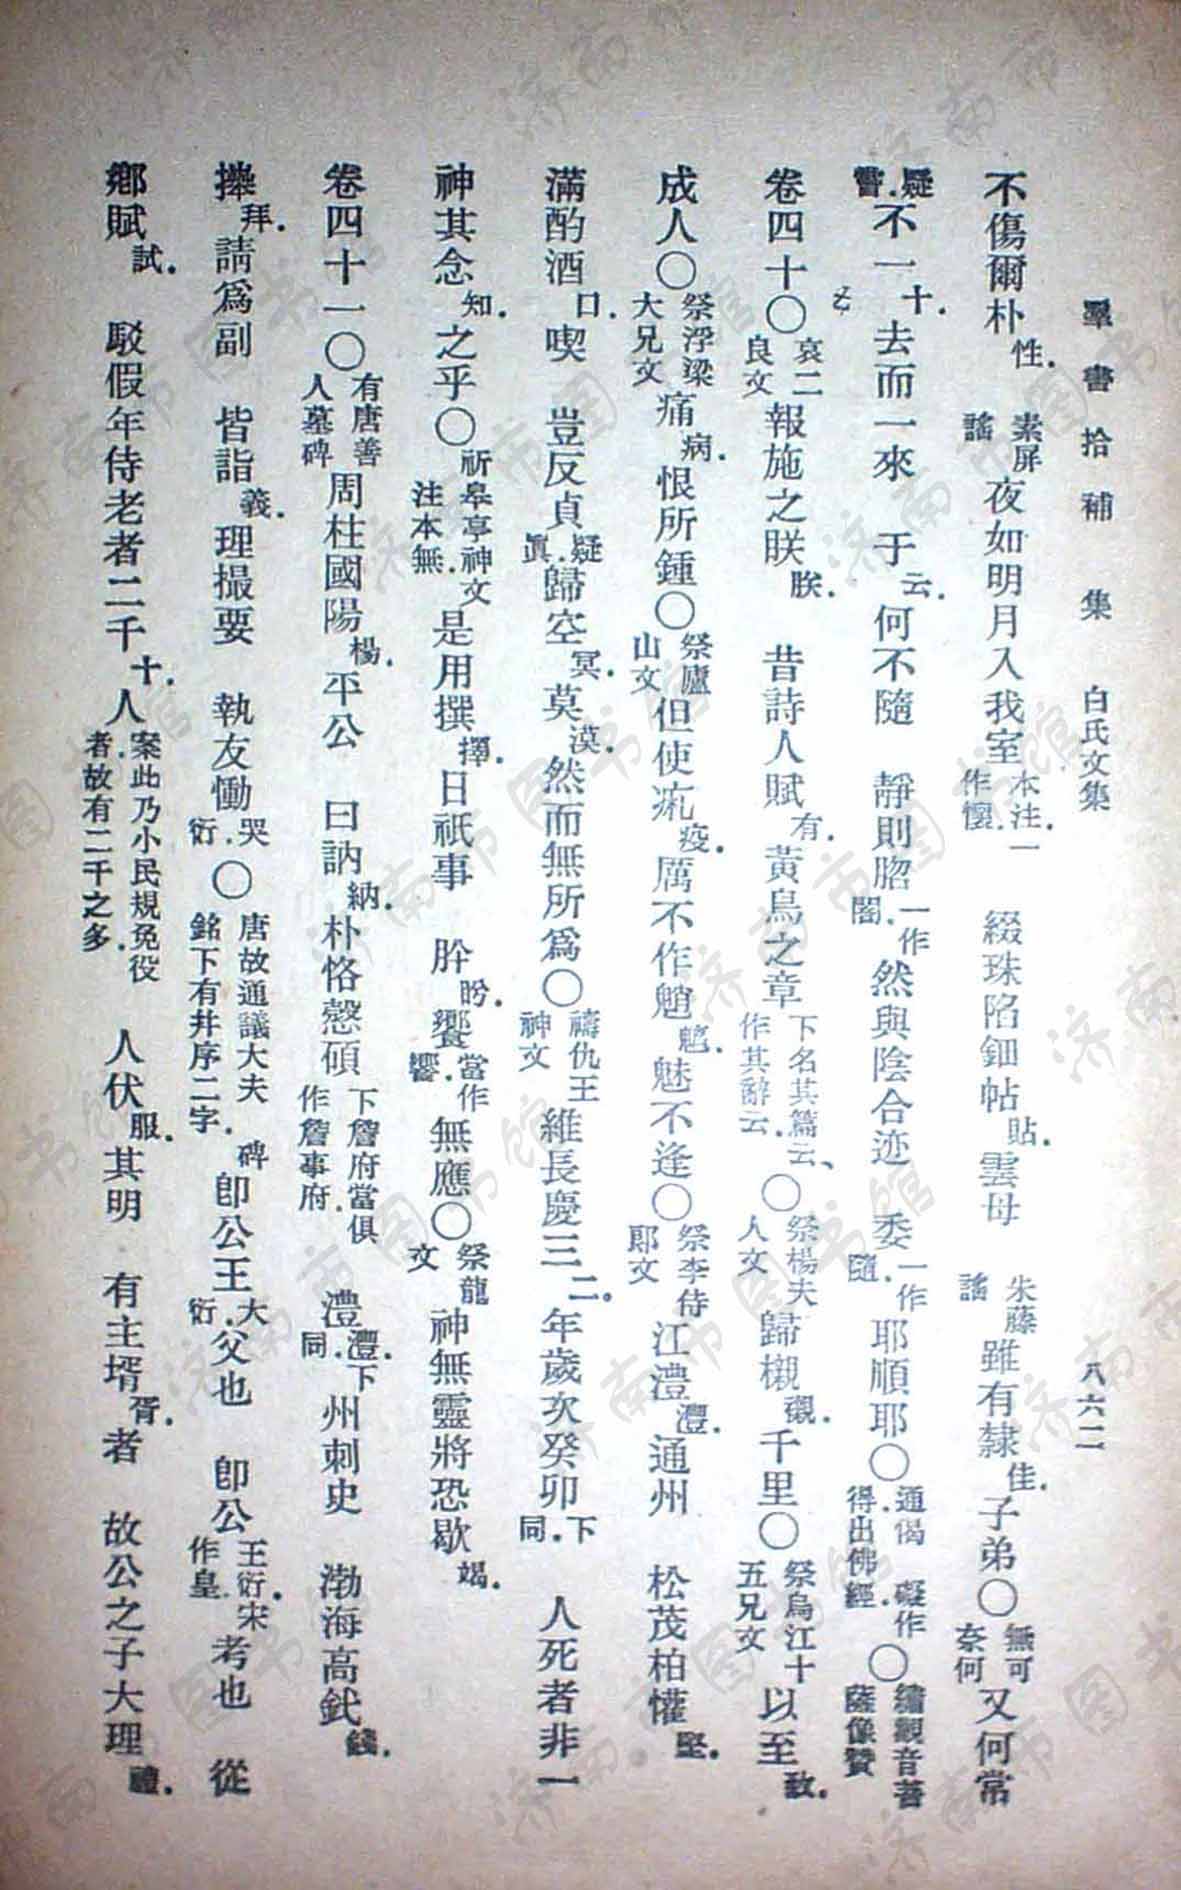 羣書拾補 集 白氏文集 八六二
不傷爾朴性. 素屏謠 夜如明月入我室本注.一作懷. 綴珠陷鈿帖貼.雲母 朱藤謠 雖有隸佳.子弟〇無可奈何 又何常
疑.嘗不一十.去而一來 于云.何不隨 靜則㫚一作闇.然與陰合迹 委一作隨.耶順耶〇通偈 礙作得.出佛經.〇繡觀音菩薩像贊
卷四十〇哀二良文報施之眹朕. 昔詩人賦有.黃鳥之章下名其篇云、作其辭云.〇祭楊夫人文 歸櫬櫬.千里〇祭烏江十五兄文 以至致.
成人〇祭浮梁大兄文痛病.恨所鍾〇祭廬山文但使疕疫.厲不作魈魑.魅不逢〇祭李侍郎文江澧灃.通州 松茂柏懽堅.
滿酌酒口.喫 豈反貞疑.眞歸空冥.莫漠.然而無所爲〇禱仇王神文維長慶三二。年歲次癸卯下.同. 人死者非一
神其念知.之乎〇祈皋亭神文注本無.是用撰擇.日祇事 肸肹.饗當作響.無應〇祭龍文神無靈將恐歇竭.
卷四十一〇有唐善人墓碑周柱國陽楊.平公 曰訥納.朴恪慤碩下詹府當俱作詹事府. 澧灃.下同.州刺史 渤海高釴錢.
擽拜.請爲副 皆詣義.理撮要 執友慟哭衍.〇唐故通議大夫 碑銘下有幷序二字. 卽公王大衍.父也 卽公王衍.宋作皇.考也 從
鄉賦試. 駁假年侍老者二千十.人案此乃小民規免役者.故有二千之多. 人伏服.其明 有主壻胥.者 故公之子大理禮.